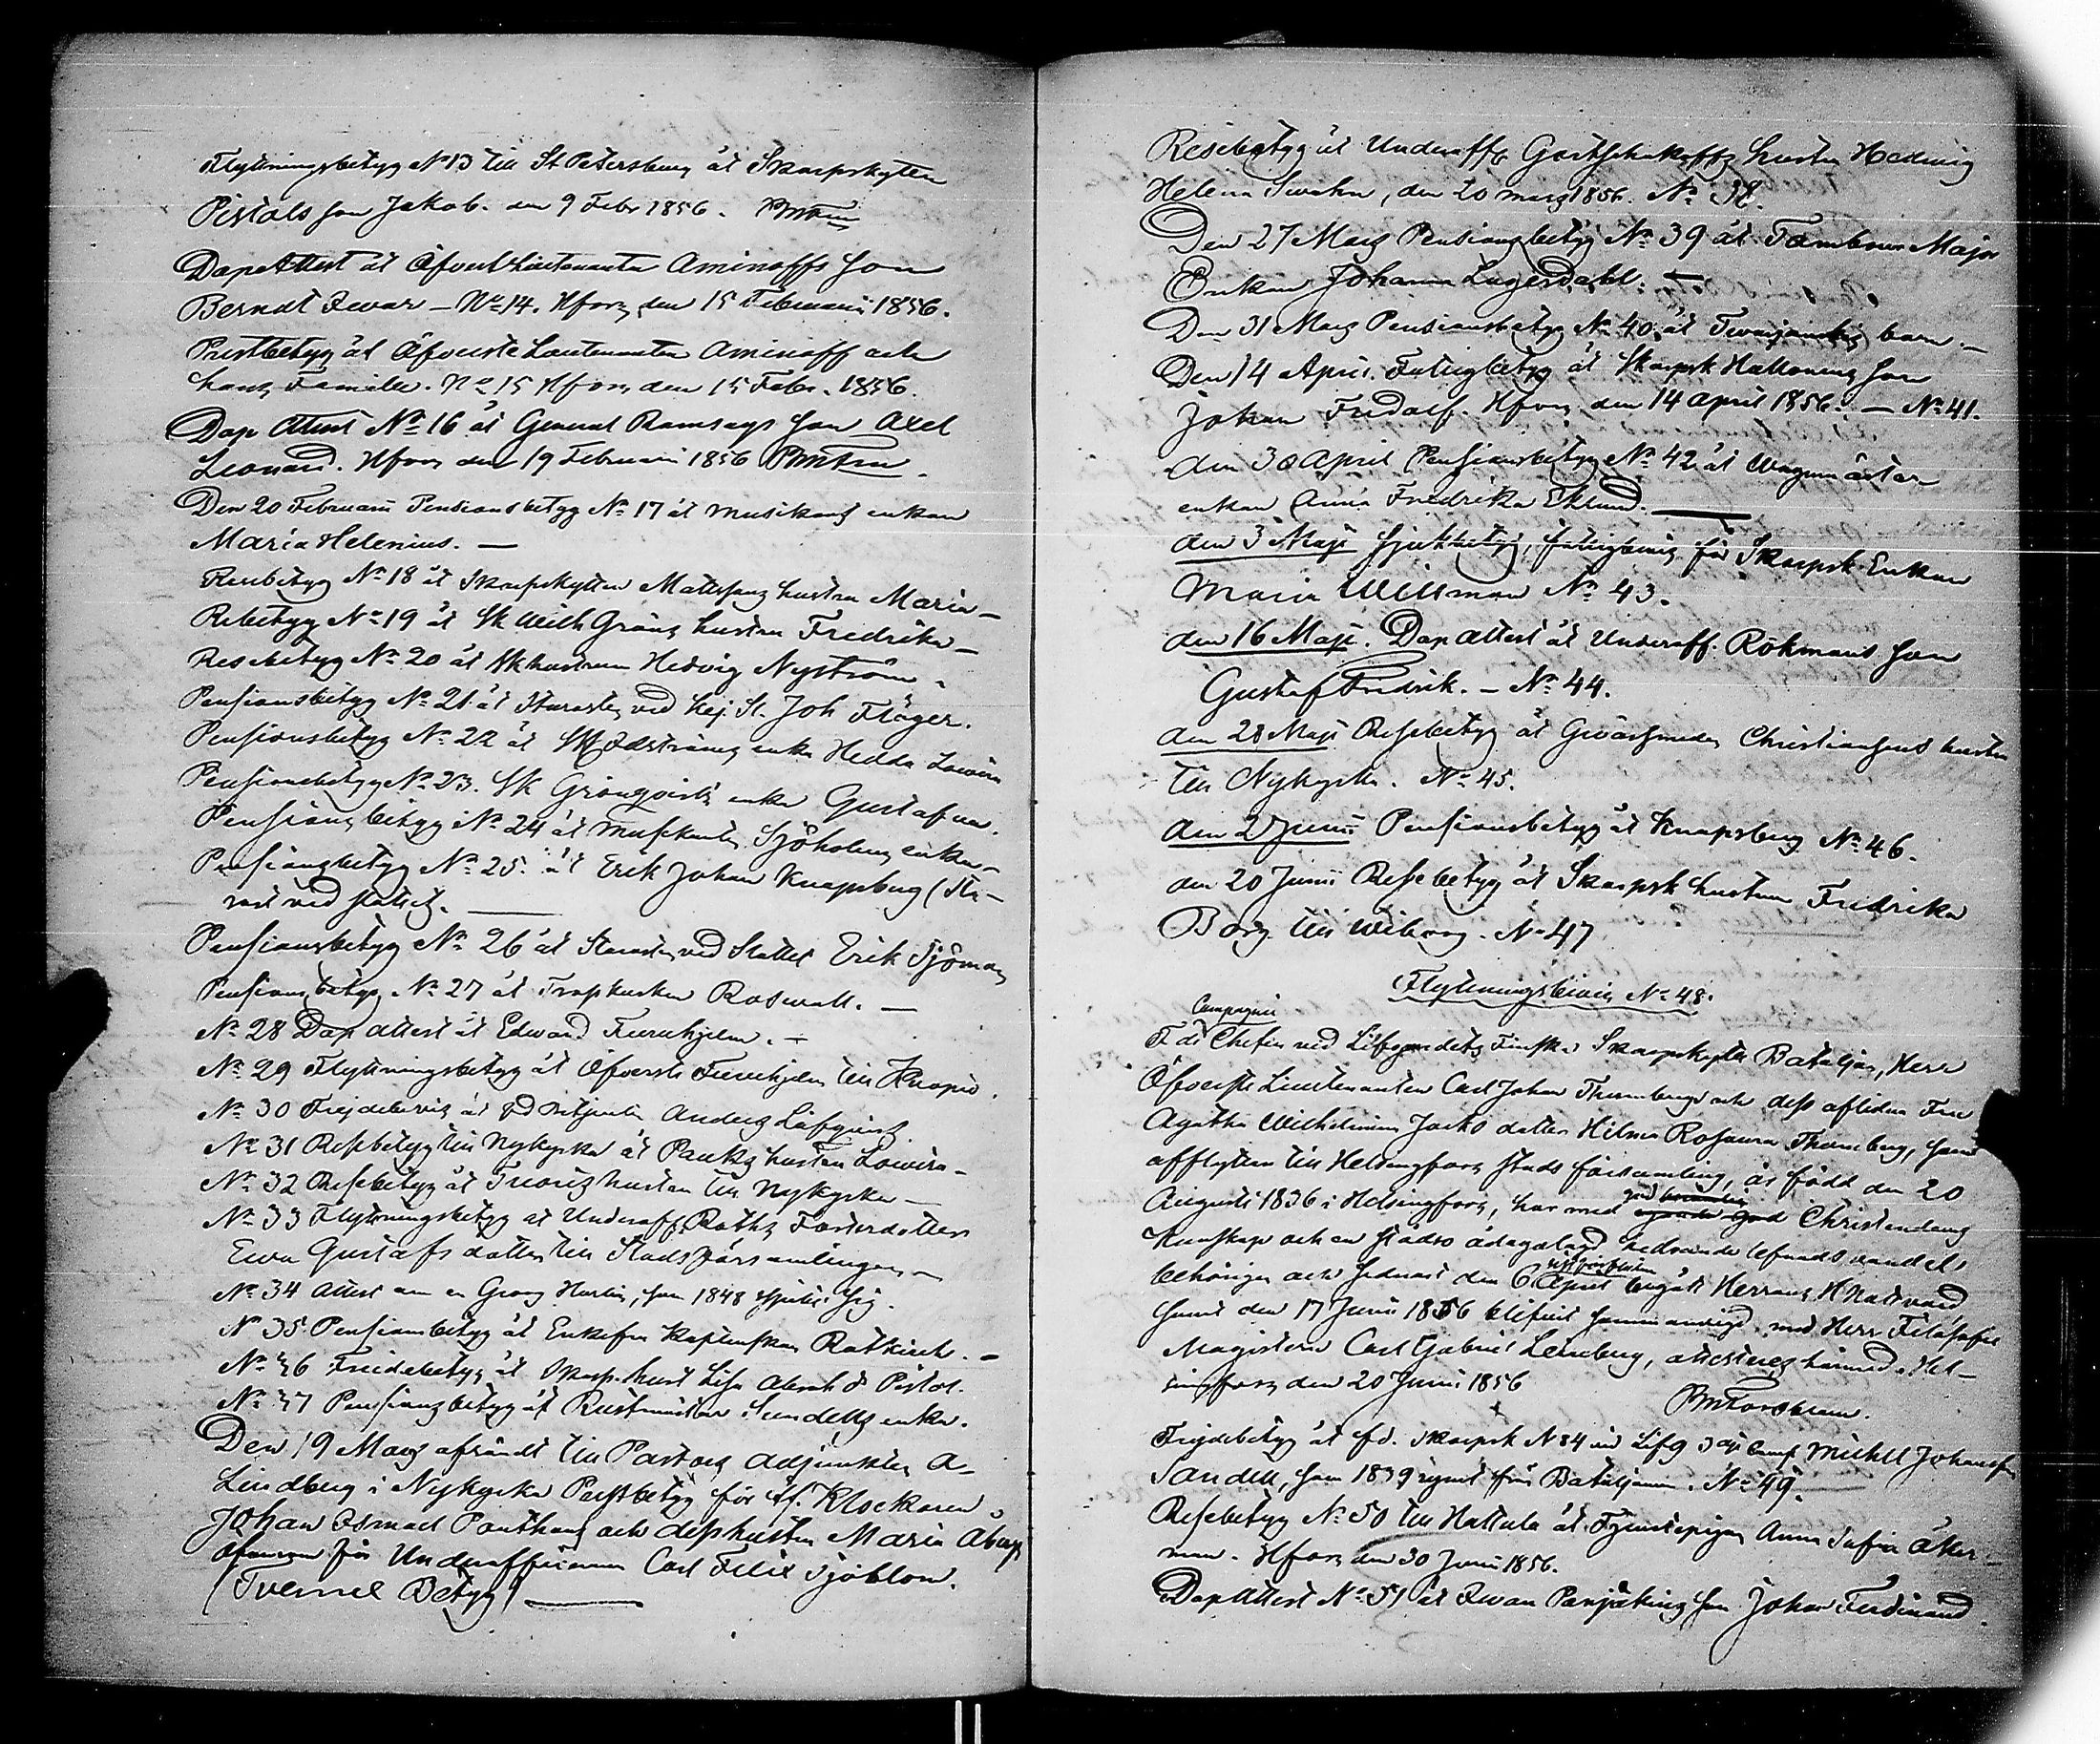 Flyttningsbetyg No 13 till St Petersburg åt Skarpskytten
Pistols son Jakob. den 9 Febr 1856.
Dopattest åt Öfverst Lieutenanten Aminoffs son
Berndt Iwar – No 14. Hfors den 15 Februarii 1856.
Prestbetyg åt Öfverste Lieutenanten Aminoff och
hans Famille. No 15 Hfors den 15 Febr. 1856.
Dop Attest No 16 åt General Ramsays son Axel
Leonard. Hfors den 19 Februari 1856
Den 20 Februarii Pensionsbetyg No 17 åt musikant enkan
Maria Helenius. —
Resebetyg No 18 åt Skarpskytten Mattssons hustru Maria –
Resebetyg No 19 åt Sk Wilh Gröns hustru Fredrika –
Resebetyg No 20 åt Sk hustrun Hedvig Nyström.
Pensionsbetyg No 21 åt Starosten ved kej. Sl. Joh Flöger.
Pensionsbetyg No 22 åt Sk enka Hedda Lovisa
Pensionsbetyg No 23. Sk Grönqvists enka Gustafva.
Pensionsbetyg No 24 åt Musikanten Sjöholms enka –
Pensionsbetyg No 25. åt Erik Johan Knapsberg (Sta-
rost ved slottet. —
Pensionsbetyg No 26 åt Starosten ved Slottet Erik Sjöman
Pensionsbetyg No 27 åt Trosskusken Roswall. —
No 28 Dop attest åt Edward Furuhjelm. —
No 29 Flyttningsbetyg åt Öfverste Furuhjelm till Kuopio.
No 30 Frejdebevis åt Anders Löfqvist.
No 31 Resebetyg till Nykyrka åt Pauks hustru Lovisa –
No 32 Resebetyg åt hustru till Nykyrka —
No 33 Flyttningsbetyg åt Underoff. Roths Fosterdotter
Ewa Gustafsdotter till Stadsförsamlingen —
No 34 Attest om en Georg Hurtin, som 1848
No 35 Pensionsbetyg åt Enkefru Kaptenskan Rotkirch. –
No 36 Frejdebetyg åt Skarp. hust Lisa Abrah d Pistol.
No 37 Pensionsbetyg åt Rustmästar Sundells enka.
Den 19 Mars afsändt till Pastors adjunkten A.
Lindberg i Nykyrka Prestbetyg för Klockaren
Johan Ismael Ponthan och dess hustru Maria
för Underofficeren Carl Felix Sjöblom.
(Tvenne Betyg) —
Resebetyg åt Underoff Gortschakoffs hustru Hedwig
Helena Swahn, den 20 mars 1856. No 38.
Den 27 Mars Pensionsbetyg No 39 åt Tambour Major
Enkan Johanna Lagerdahl. —
Den 31 Mars Pensionsbetyg No 40 åt barn. —
Den 14 April. Fattigbetyg åt Skarpsk Hallonens son
Johan Fridolf. Hfors den 14 April 1856. — No 41.
den 30 April Pensionsbetyg No 42 åt Wagnmästar
enkan Anna Fredrika Eklund. —
den 3 Maji Sjukbetyg, fattigbevis för Skarpsk Enkan
Maria Willman No 43.
den 16 Maji. Dop attest åt Underoff. Rökmans son
Gustaf Fredrik. – No 44.
den 28 Maji Resebetyg åt Gevärsmeden Christiansens hustru
till Nykyrka. No 45.
den 2 Junii Pensionsbetyg åt Knapsberg No 46.
den 20 Junii Resebetyg åt Skarpsk hustrun Fredrika
Borg till Wiborg. No 47
Flyttningsbevis No 48.
Compagni
F d Chefen ved Lifgardets Finska Skarpskytte Bataljon, Herr
Öfverste Lieutenanten Carl Johan Thunebergs och dess aflidna Fru
Agatha Wilhelmina Jacks dotter Hilma Rosaura Thuneberg, som
afflyttar till Helsingfors stads församling, är född den 20
Augusti 1836 i Helsingfors, har med god Christendoms
kunskap och en städse ådagalagd hedrande lefnads vandel,
behörigen och sednast den 6 April begått Herrans H Nattvard
samt den 17 Junii 1856 blifvit sammanvigd med Herr Filosofie
Magistern Carl Gabriel Leineberg, attesteras härmed. Hel-
singfors den 20 Junii 1856
Frejdebetyg åt fd. Skarpsk N 84 vid Lifg 3dje Comp Mickel Johansson
Sandell, som 1839 rymt från Bataljonen. No 49.
Resebetyg No 50 till Hattula åt Tjenstepigan Anna Sofia Åker-
man. Hfors den 30 Junii 1856.
Dop Attest No 51 åt Iwan son Johan Ferdinand.